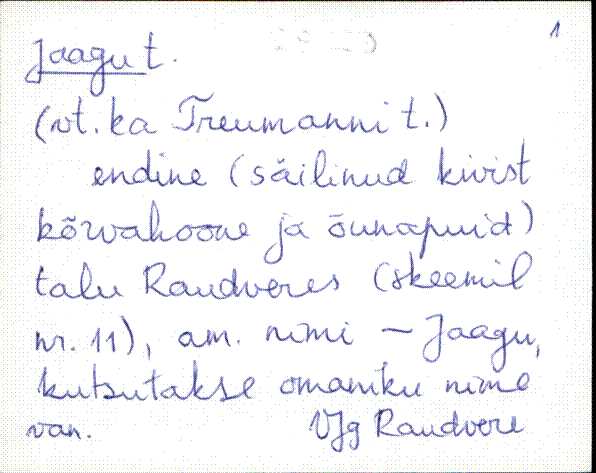 1
Jaagu t.
(vt. ka Treumanni t.)
endine (säilinud kivist
kõrvahoone ja õunapuid)
talu Raudveres (skeemil
nr. 11), am. nimi – Jaagu,
kutsutakse omaniku nime
van. VJg Raudvere